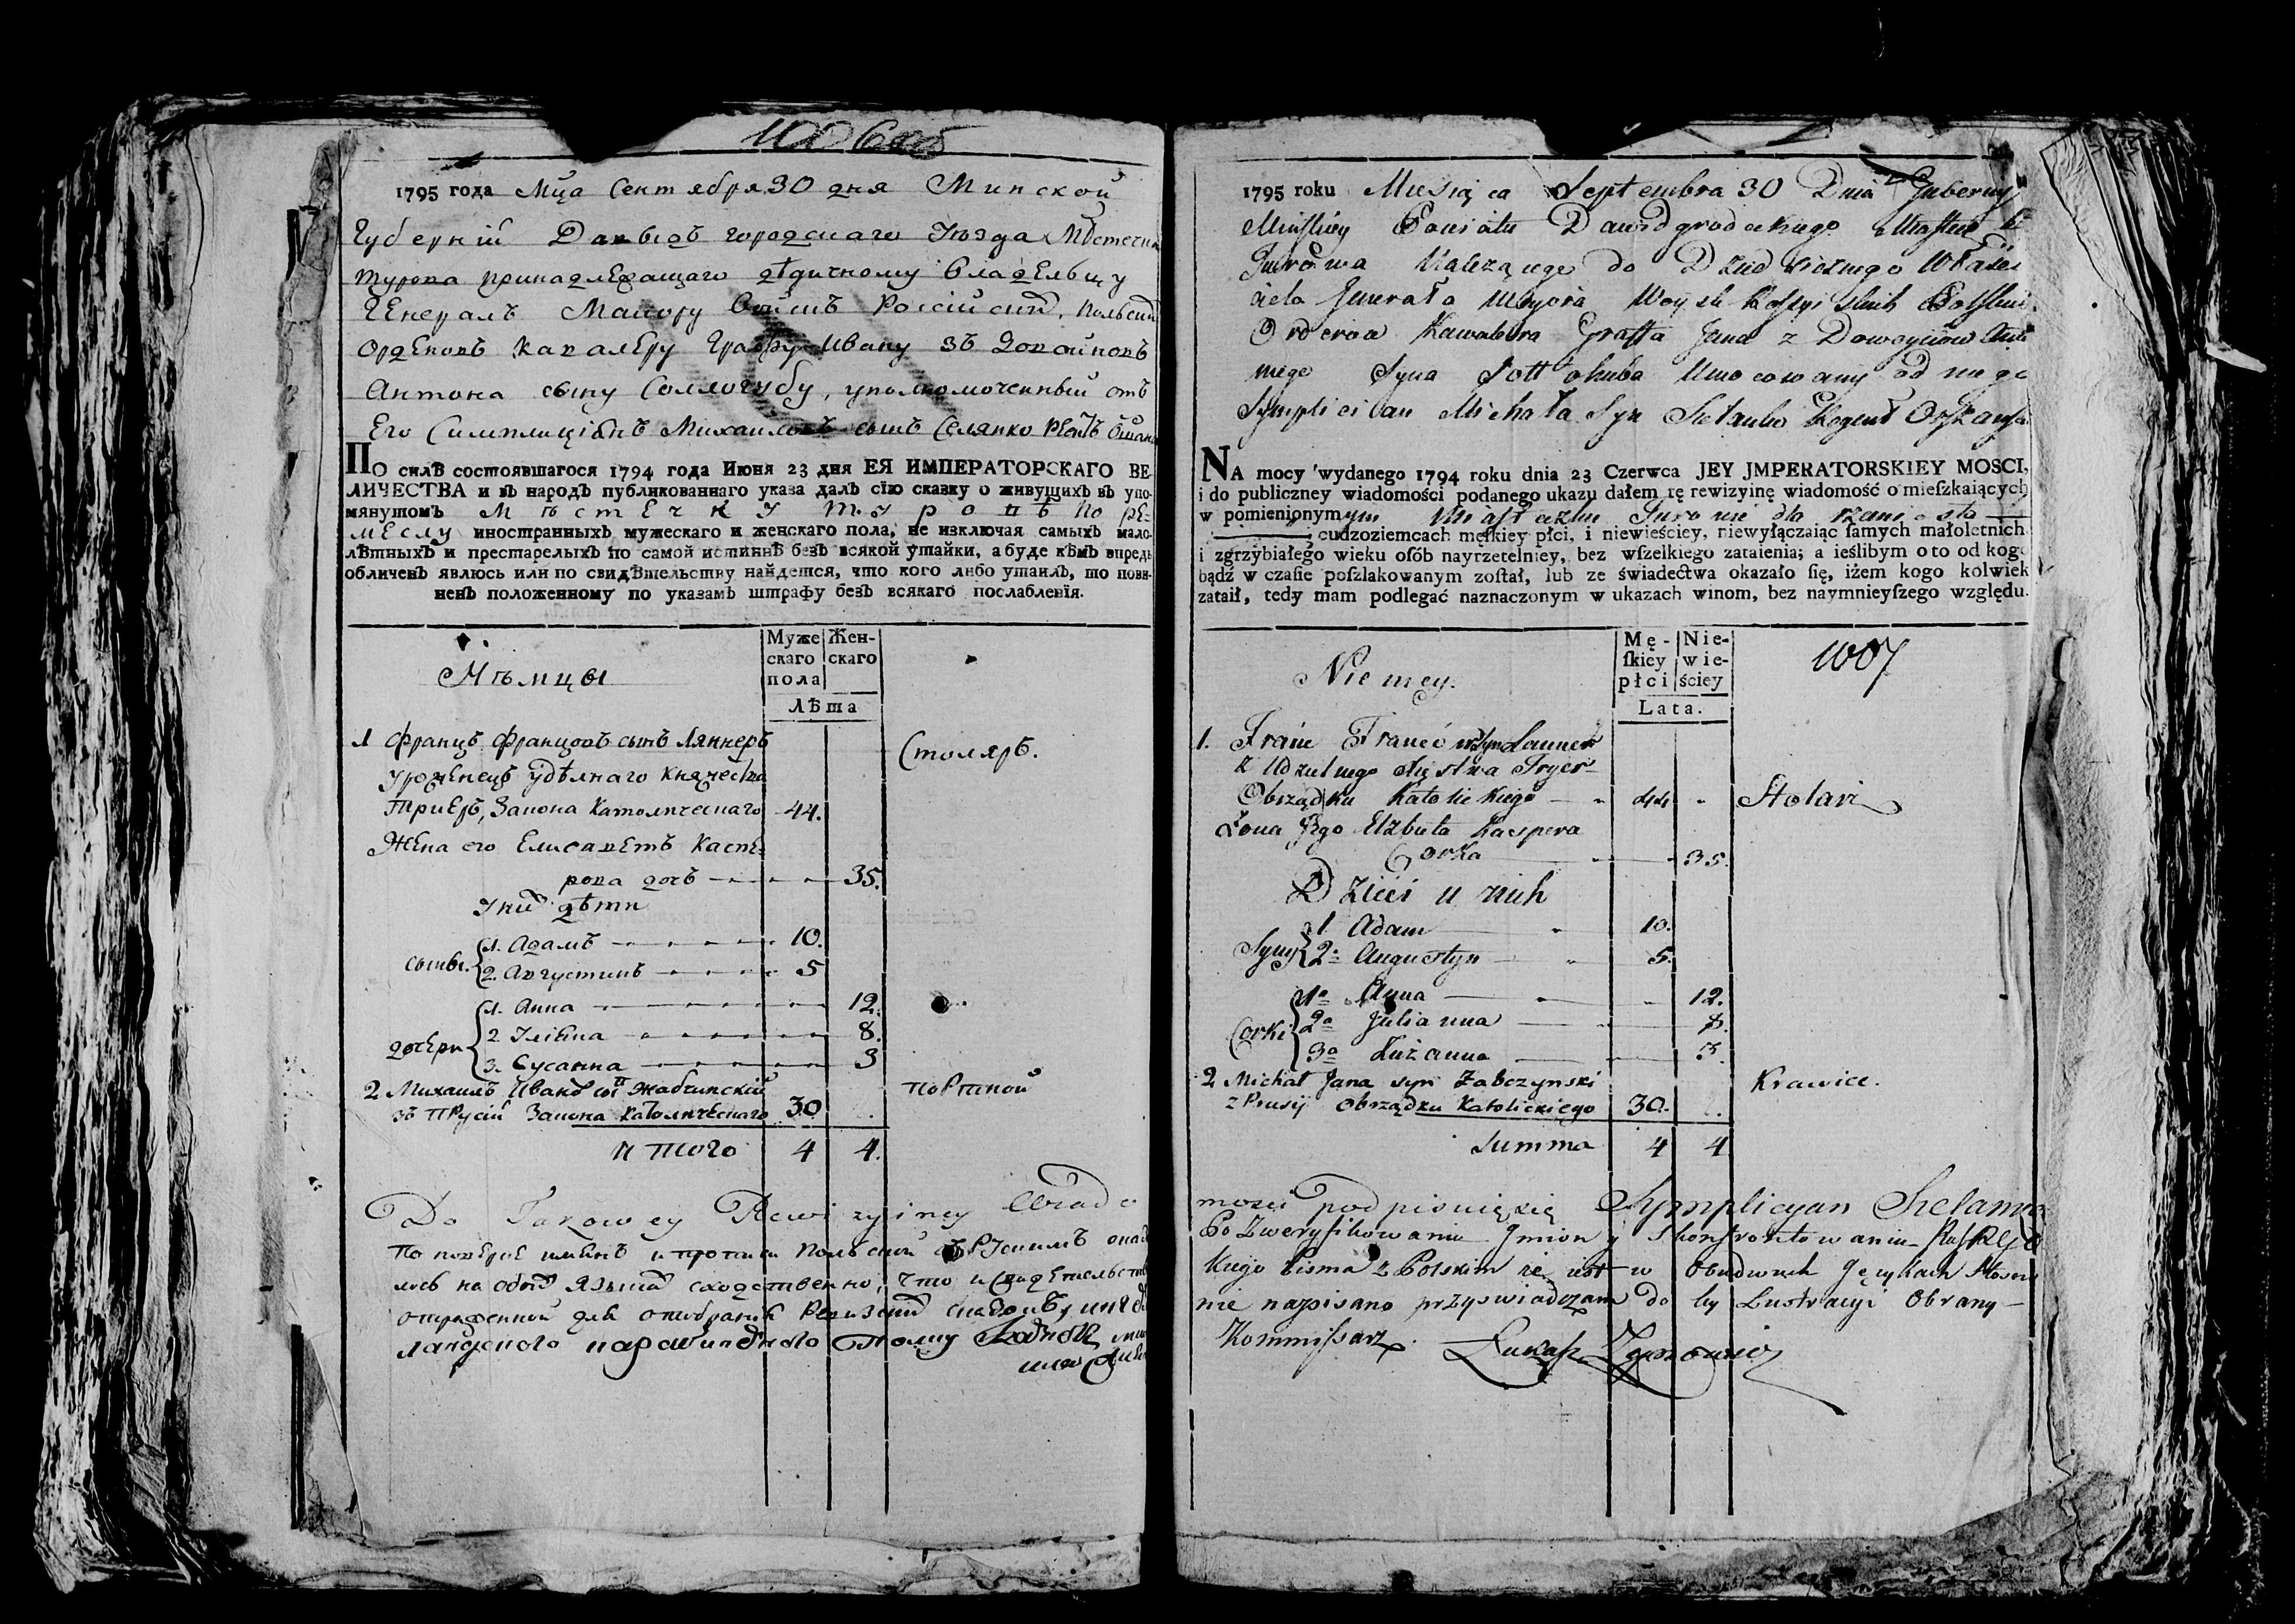 1795 года Мца Сентября 30 дня Минской
Губерніи Давыдъ городскаго Уѣзда Мѣстечка
Турова принадлежащаго дѣдичному владельцу
Генералъ Маіору Войскъ Россійскихъ, Польскихъ
Орденовъ Кавалеру Графу Ивану зъ Довойновъ
Антона сыну Соллогубу, уполномоченный отъ
Его Симплиціянъ Михаиловъ сынъ Селянко
ПО силѣ состоявшагося 1794 года Июня 23 дня ЕЯ ИМПЕРАТОРСКАГО ВЕ-
ЛИЧЕСТВА и въ народъ публикованнаго указа далъ сїю сказку о живущихъ въ упо-
мянутомъ Мѣстечку Туровѣ по ре-
меслу иностранныхъ мужескаго и женскаго пола, не изключая самыхъ мало-
лѣтныхъ и престарелыхъ по самой истиннѣ безъ всякой утайки, а буде кѣмъ впредь
обличенъ явлюсь или по свидѣтельству найдется, что кого либо утаилъ, то пови-
ненъ положенному по указамъ штрафу безъ всякаго послабленїя.
Нѣмцы
Муже скаго пола Жен- скаго
Лѣта
1 Францъ Францовъ сынъ Ляннеръ Столяръ.
Уроженецъ удѣлнаго Княжества
Триеръ, Закона Католическаго 44.
Жена его Елисаветъ Каспе-
рова дочь 35.
У них дѣти
сыны 1. Адамъ 10.
2. Августинъ 5
дочери 1. Анна 12.
2. Уліяна 8.
3. Сусанна 3
2 Михаилъ Ивановъ сынъ Жабчинскій портной
зъ Прусіи Закона Католическаго 30
Итого 4 4.
Do Takowey Rewizyiney Wiado
1795 roku Miesiąca Septembra 30 Dnia Guberny
Minskiey Powiatu Dawidgrodeckiego Miasteczka
Turowa Należącego do Dziedzicznego Właści
ciela Jenerała Mayora Woysk Rossyiskich Polskich
Orderow Kawalera Graffa Jana z Dowoynow Anto
niego Syna Sollohuba Umocowany od niego
Symplician Michała Syn Sielanko Regent Oszmański
NA mocy wydanego 1794 roku dnia 23 Czerwca JEY JMPERATORSKIEY MOSCI,
i do publiczney wiadomości podanego ukazu dałem tę rewizyinę wiadomość o mieſzkaiących
w pomienionymym Miasteczku Turowie dla rzemiosła
cudzoziemcach męſkiey płci, i niewieściey, niewyłączaiąc ſamych małoletnich
i zgrzybiałego wieku oſób nayrzetelniey, bez wſzelkiego zataienia; a ieślibym o to od kogo
bądź w czaſie poſzlakowanym zoſtał, lub ze świadectwa okazało ſię, iżem kogo kolwiek
zataił, tedy mam podlegać naznaczonym w ukazach winom, bez naymnieyſzego względu.
Niemcy.
Mę- ſkiey płci Nie- wie- ściey
Lata.
1007
1. Franc Franców Syn Lanner
z Udzielnego Xięstwa Tryer-
Obrządku Katolickiego 44 Stolarz
Żona Jego Elzbieta Kaspera
Corka 35.
Dzieci u nich
Syny 1. Adam 10.
2. Augustyn 5.
Corki 1a Anna 12.
2a Julianna 8.
3a Zuzanna 3.
2 Michał Jana syn Zabczynski Krawiec.
z Prusij Obrządku Katolickiego 30.
Summa 4 4
mosci podpisuię się Symplicyan Sielanko
Po Zweryfikowaniu Jmion y Skonfrontowaniu Rossyi
skiego Pisma z Polskim że iest w Obudwuch Językach Stosow
nie napisano przyswiadczam do tey Lustracyi Obrany
Kommissarz.